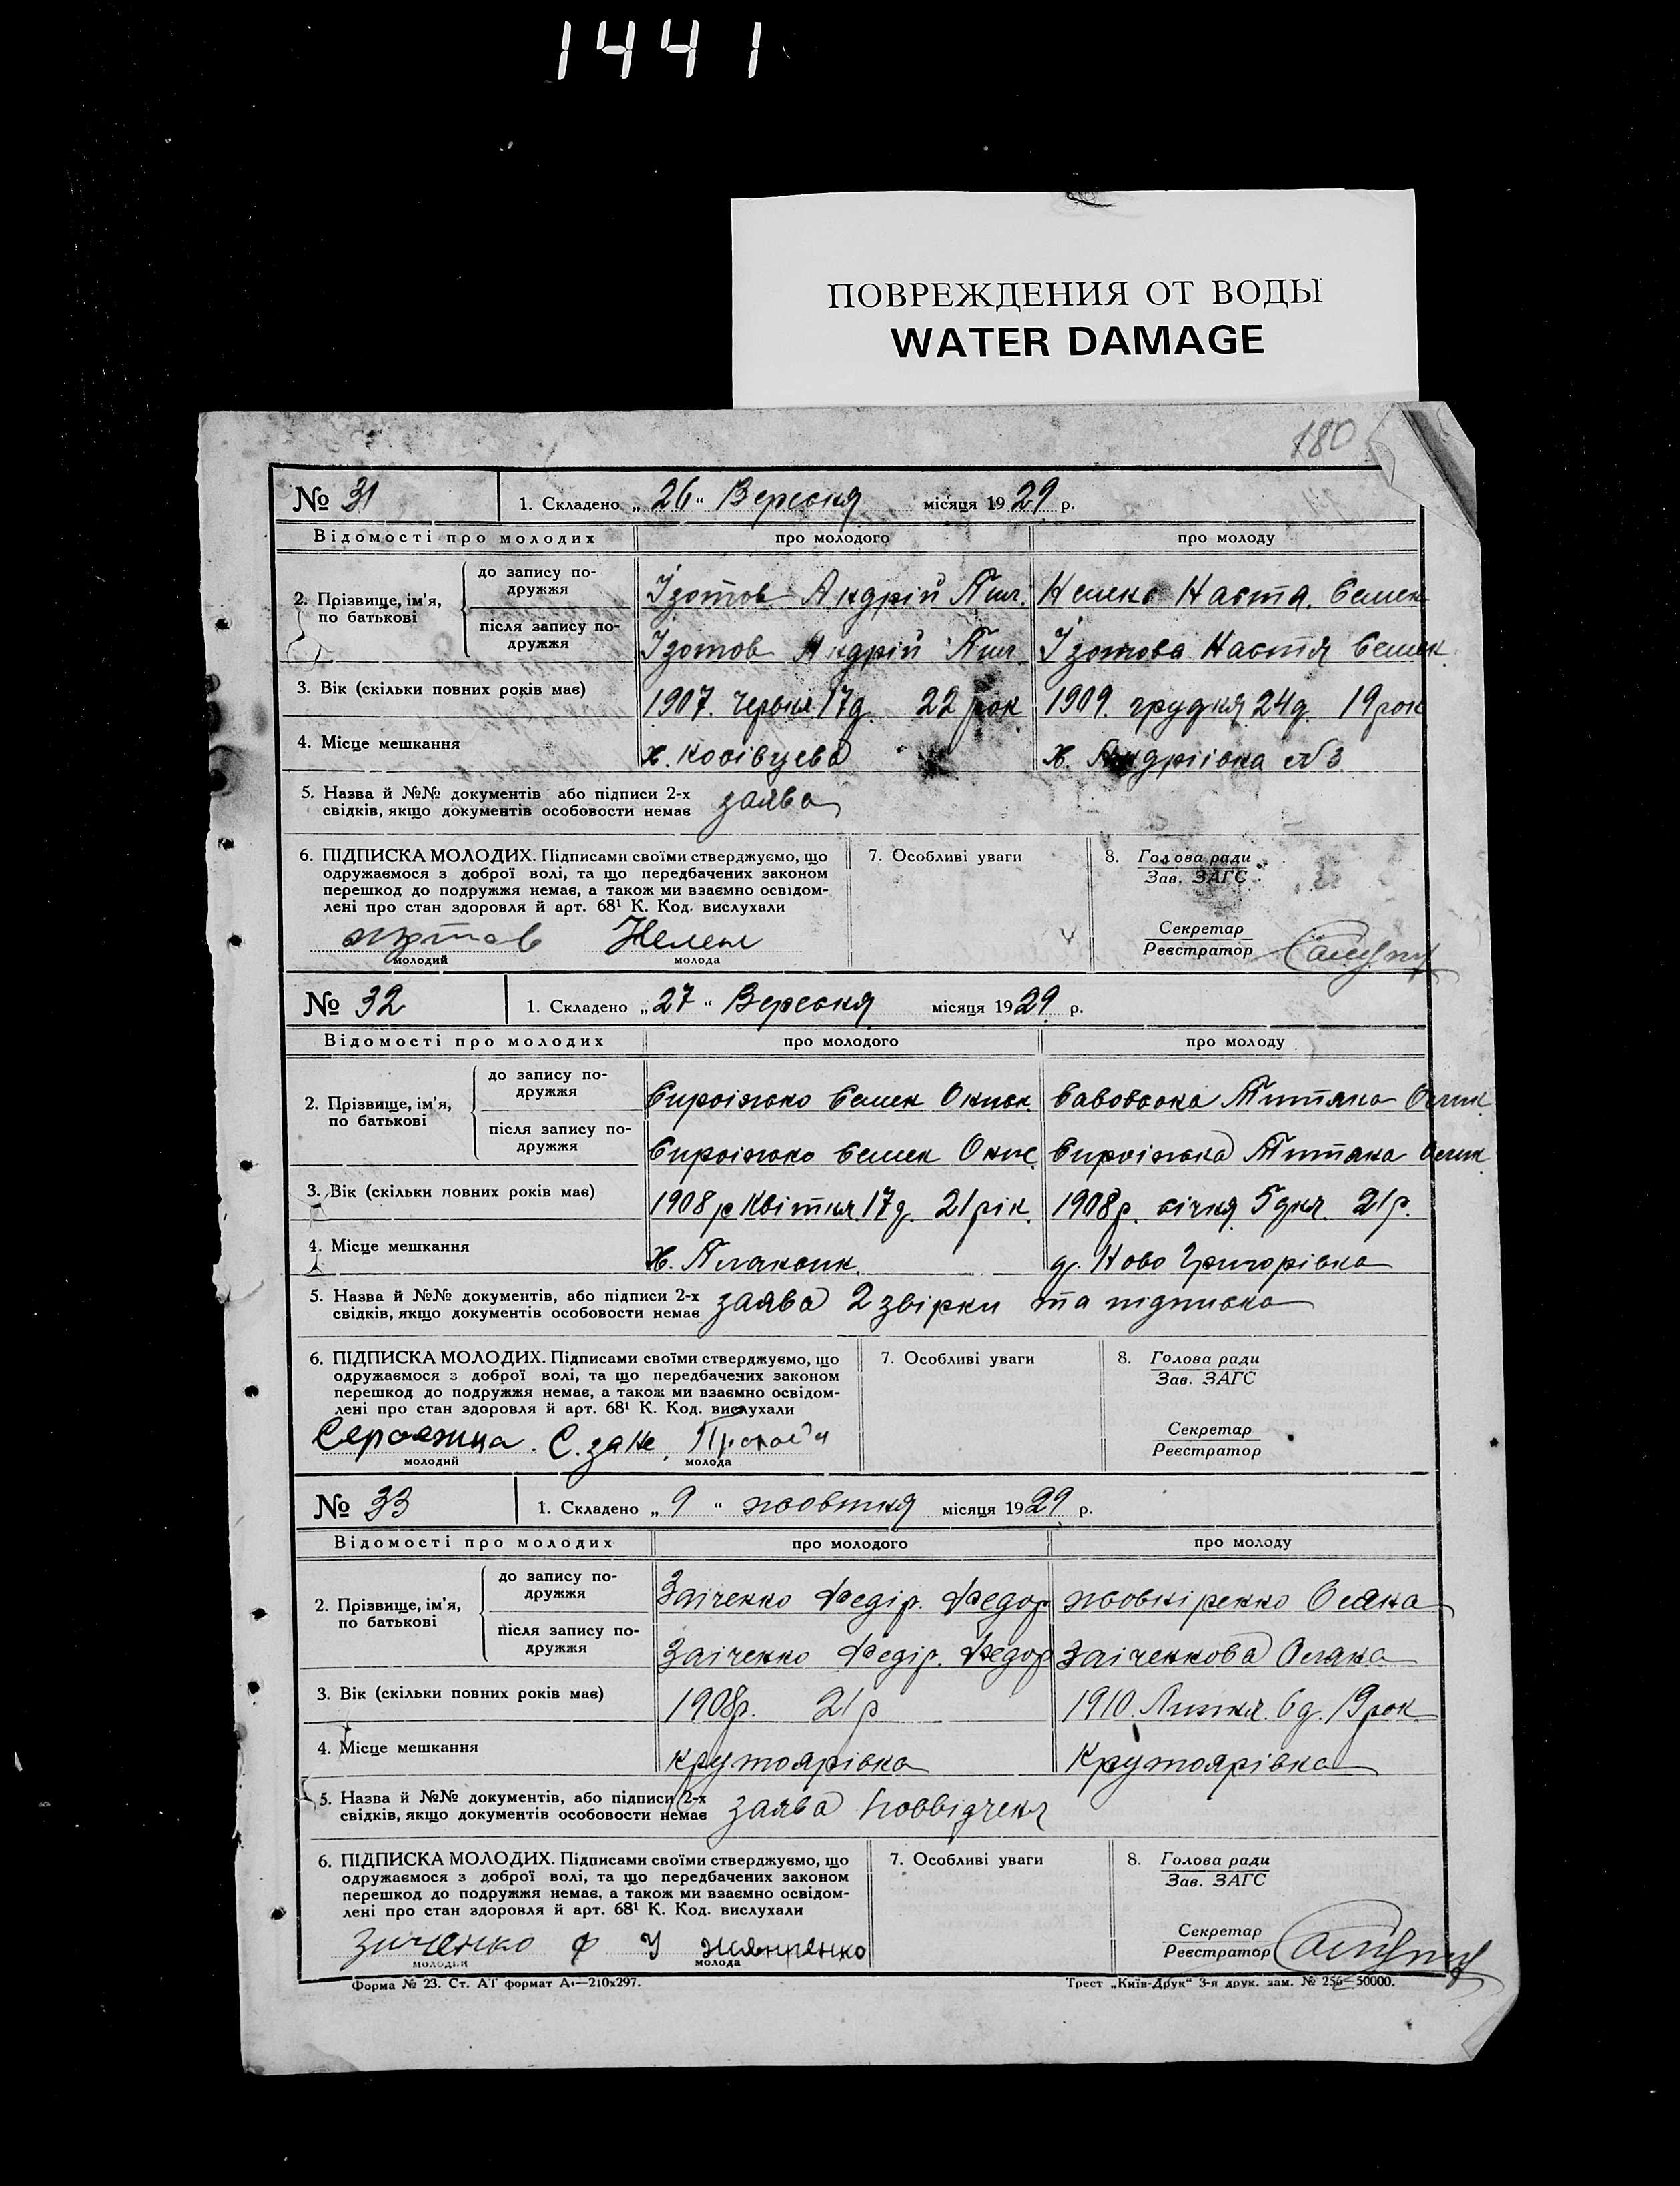 1441
ПОВРЕЖДЕНИЯ ОТ ВОДЫ
WATER DAMAGE
180
№ 31 1. Складено „ 26 “ Вересня місяця 1929 р.
Відомості про молодих про молодого про молоду
2. Прізвище, ім’я, по батькові
до запису подружжя Ізотов Андрій Пил. Немек Наста. Семен
після запису подружжя Ізотов Андрій Пил. Ізотова Настя Семен.
3. Вік (скільки повних років має) 1907. червня 17д. 22 рок 1909. грудня 24д. 19 рок
4. Місце мешкання х. Косівцева х. Андріївка №3
5. Назва й №№ документів або підписи 2-х
свідків, якщо документів особовости немає заява
6. ПІДПИСКА МОЛОДИХ. Підписами своїми стверджуємо, що 7. Особливі уваги 8. Голова ради
одружаємося з доброї волі, та що передбачених законом Зав. ЗАГС
перешкод до подружжя немає, а також ми взаємно освідом-
лені про стан здоров‘я й арт. 68¹ К. Код. вислухали
Секретар
Реєстратор
молодий молода
№ 32 1. Складено „ 27 “ Вересня місяця 1929 р.
Відомості про молодих про молодого про молоду
2. Прізвище, ім’я, по батькові
до запису подружжя Сироїжко Семен Онис. Савовська Титяна
після запису подружжя Сироїжко Семен Онис. Сироїжка Титяна
3. Вік (скільки повних років має) 1908р Квітня 17д. 21 рік. 1908р. січня 5 дня. 21р.
4. Місце мешкання х. д. Ново Григорівка
5. Назва й №№ документів, або підписи 2-х
свідків, якщо документів особовости немає заява 2 звірки та підписка
6. ПІДПИСКА МОЛОДИХ. Підписами своїми стверджуємо, що 7. Особливі уваги 8. Голова ради
одружаємося з доброї волі, та що передбачених законом Зав. ЗАГС
перешкод до подружжя немає, а також ми взаємно освідом-
лені про стан здоровля й арт. 68¹ К. Код. вислухали
Секретар
Реєстратор
С. за не
молодий молода
№ 33 1. Складено „ 9 “ жовтня місяця 1929 р.
Відомості про молодих про молодого про молоду
2. Прізвище, ім’я, по батькові
до запису подружжя Заіченко Федір. Федор
після запису подружжя Заіченко Федір. Федор Заіченкова
3. Вік (скільки повних років має) 1908р. 21р 1910. Липня. 6д. 19 рок.
4. Місце мешкання Крутоярівка Крутоярівка
5. Назва й №№ документів, або підписи 2-х
свідків, якщо документів особовости немає заява
6. ПІДПИСКА МОЛОДИХ. Підписами своїми стверджуємо, що 7. Особливі уваги 8. Голова ради
одружаємося з доброї волі, та що передбачених законом Зав. ЗАГС
перешкод до подружжя немає, а також ми взаємно освідом-
лені про стан здоровля й арт. 68¹ К. Код. вислухали
Секретар
Реєстратор
молодий молода
Форма № 23. Ст. АТ формат А₄—210х297. Трест „Київ-Друк“ 3-я друк. зам. № 256—50000.